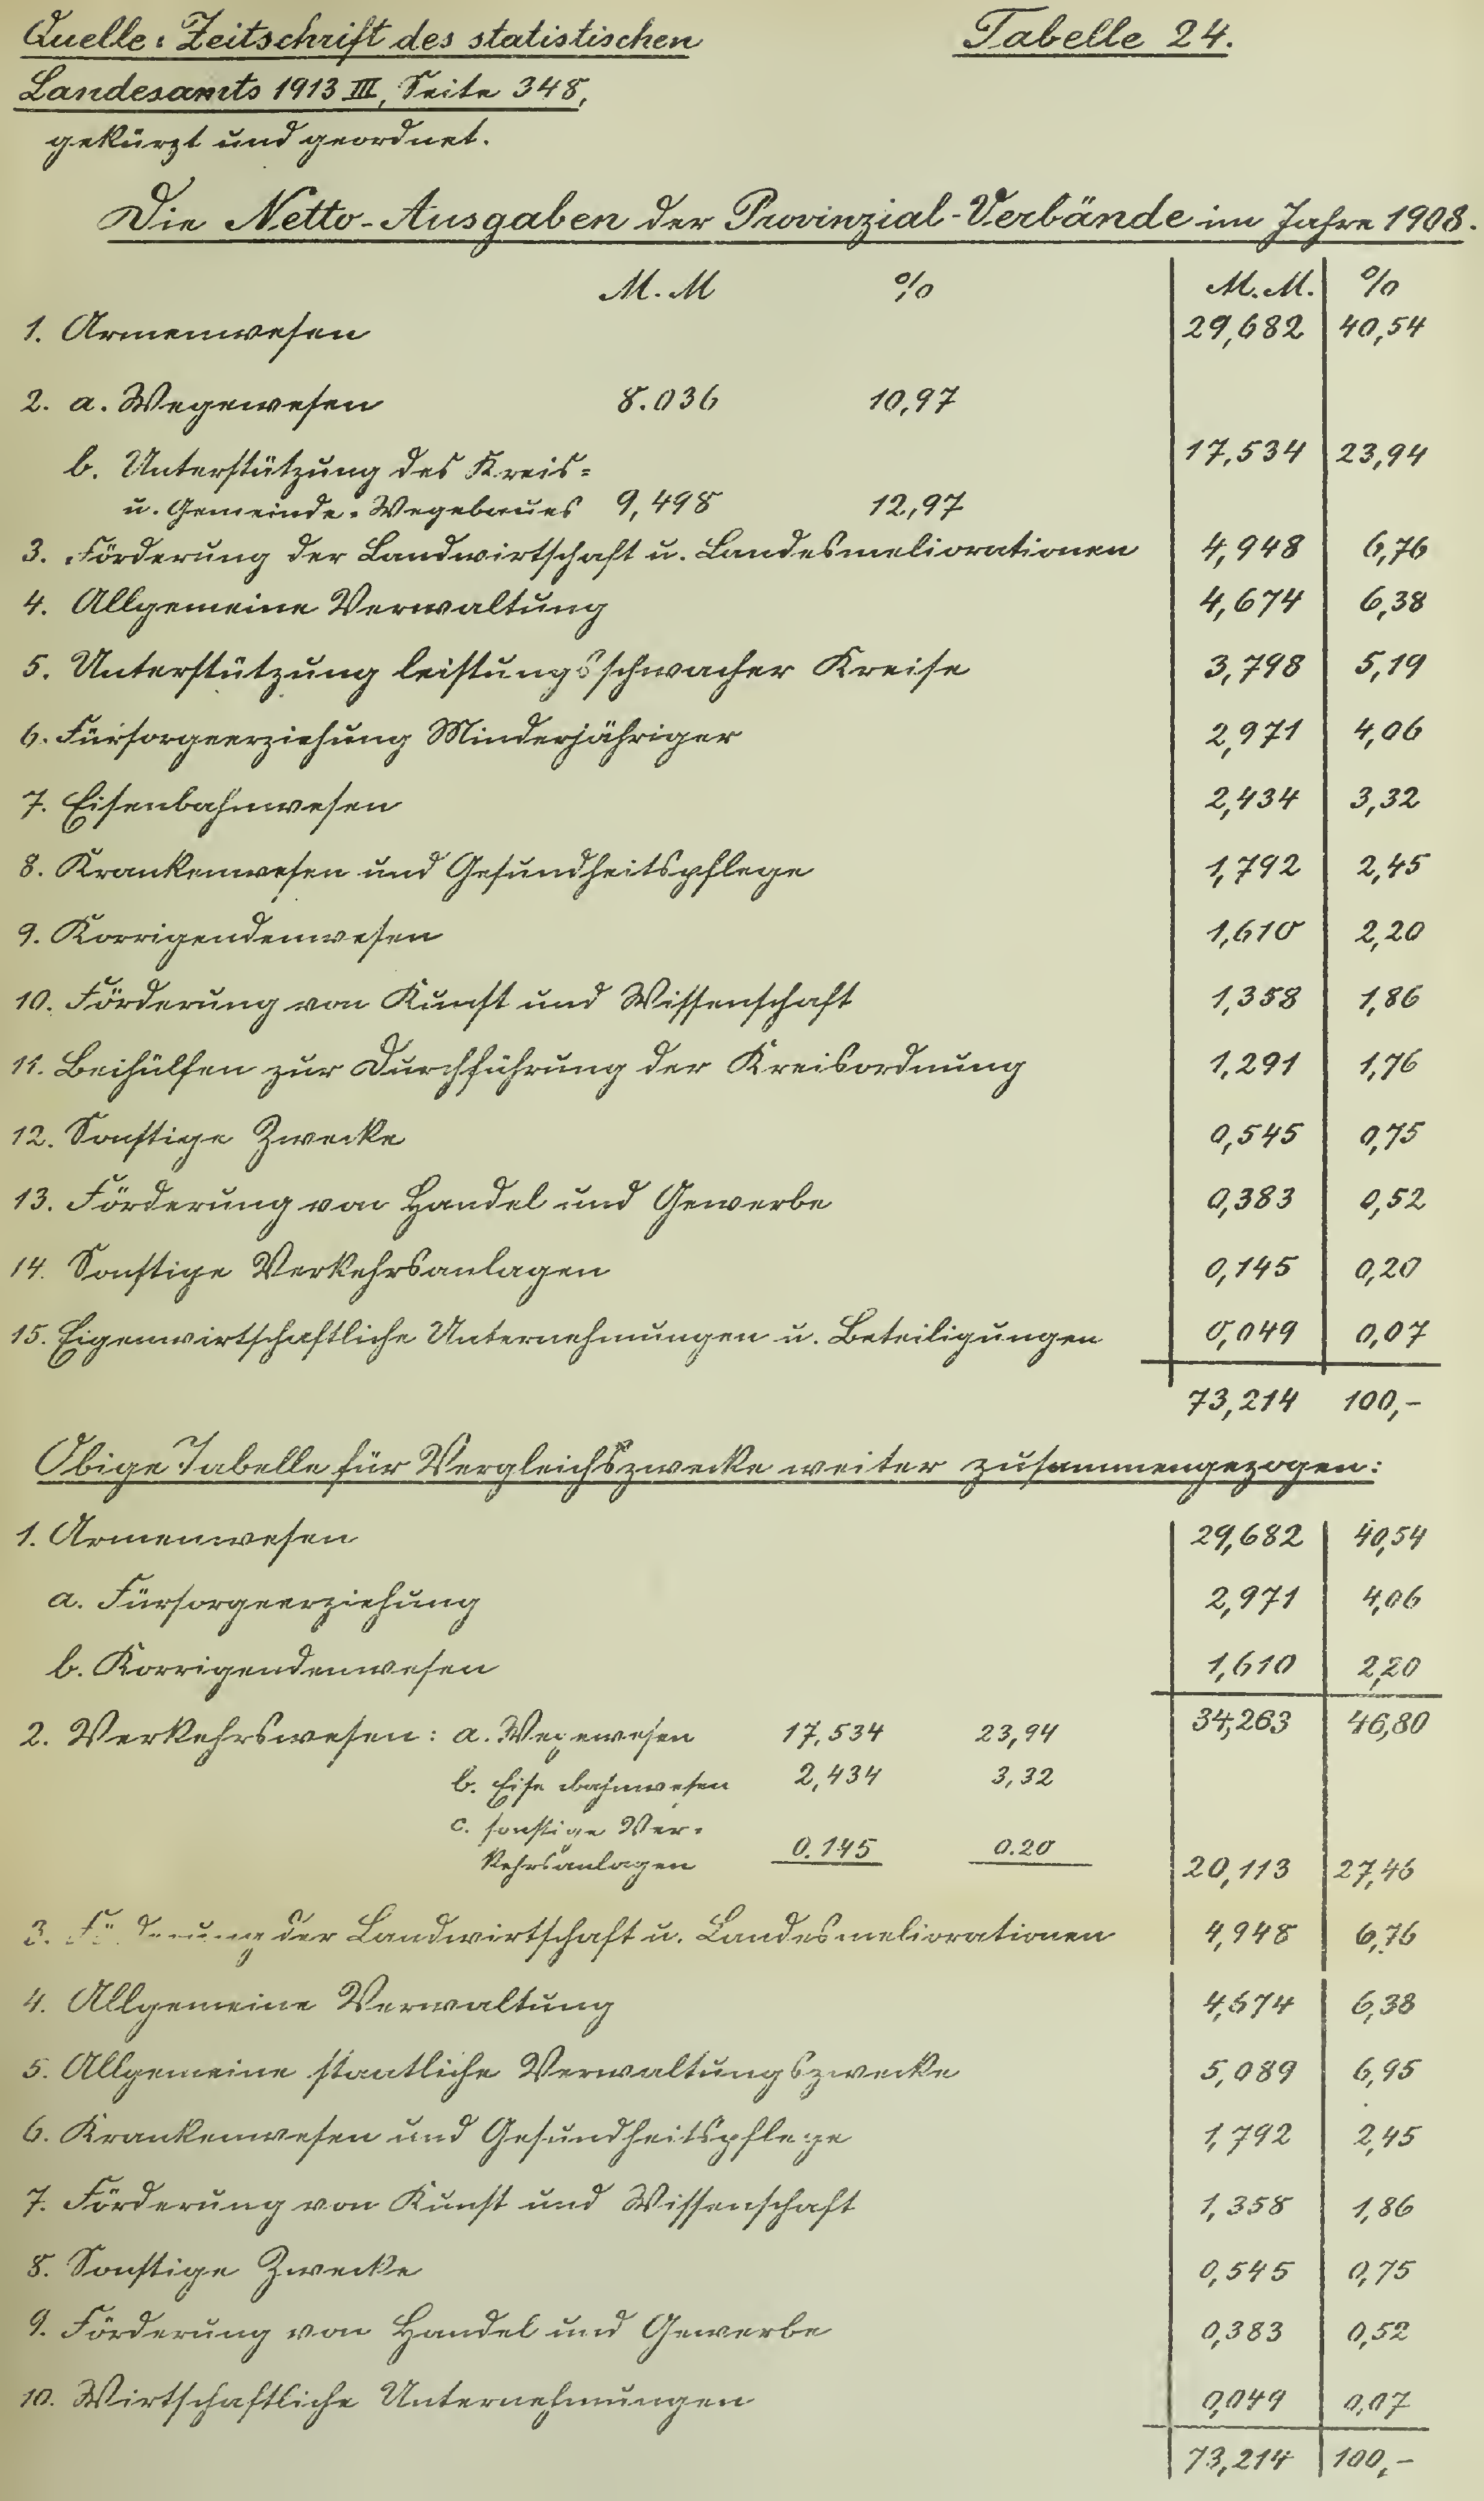 Quelle: Zeitschrift des statistischen Tabelle 24.
Landesamts 1913 III, Seite 348,
gekürzt und geordnet.
Die Netto-Ausgaben der Provinzial-Verbände im Jahre 1908.
M.M % M.M. %
1. Armenwesen 29,682 40,54
2. a. Wegewesen 8.036 10,97
b. Unterstützung des Kreis= 17,534 23,94
u. Gemeinde-Wegebaues 9,498 12,97
3. Förderung der Landwirtschaft u. Landesmeliorationen 4,948 6,76
4. Allgemeine Verwaltung 4,674 6,38
5. Unterstützung leistungsschwacher Kreise 3,798 5,19
6. Fürsorgeerziehung Minderjähriger 2,971 4,06
7. Eisenbahnwesen 2,434 3,32
8. Krankenwesen und Gesundheitspflege 1,792 2,45
9. Korrigendenwesen 1,610 2,20
10. Förderung von Kunst und Wissenschaft 1,358 1,86
11. Beihülfen zur Durchführung der Kreisordnung 1,291 1,76
12. Sonstige Zwecke 0,545 0,75
13. Förderung von Handel und Gewerbe 0,383 0,52
14. Sonstige Verkehrsanlagen 0,145 0,20
15. Eigenwirtschaftliche Unternehmungen u. Beteiligungen 0,049 0,07
73,214 100,-
Obige Tabelle für Vergleichszwecke weiter zusammengezogen:
1. Armenwesen 29,682 40,54
a. Fürsorgeerziehung 2,971 4,06
b. Korrigendenwesen 1,610 2,20
34,263 46,80
2. Verkehrswesen: a. Wegewesen 17,534 23,94
b. Eisenbahnwesen 2,434 3,32
c. sonstige Ver-
kehrsanlagen 0.145 0.20 20,113 27,46
3. Förderung der Landwirtschaft u. Landesmeliorationen 4,948 6,76
4. Allgemeine Verwaltung 4,674 6,38
5. Allgemeine staatliche Verwaltungszwecke 5,089 6,95
6. Krankenwesen und Gesundheitspflege 1,792 2,45
7. Förderung von Kunst und Wissenschaft 1,358 1,86
8. Sonstige Zwecke 0,545 0,75
9. Förderung von Handel und Gewerbe 0,383 0,52
10. Wirtschaftliche Unternehmungen 0,049 0,07
73,214 100,-